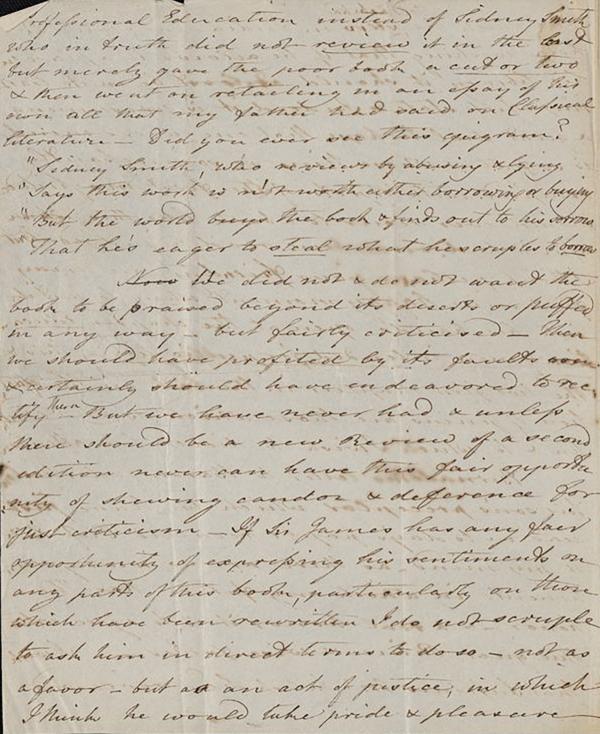 Professional Education instead of Sidney Smith
who in truth did not review it in the least
but merely gave the poor book a cut or two
& then went on retailing in an essay of his
own all that my father had said on Classical
literature – Did you ever see this epigram?
"Sidney Smith, who reviews by abusing & lying
"Says this work is n't worth either borrowing or buying
"But the world buys the book & finds out to his sorrow
That he's eager to steal what he scruples to borrow
Now We did not & do not want the
book to be praised beyond its deserts or puffed
in any way – but fairly criticised – Then
we should have profited by its faults
& certainly should have endeavored to rec
tify them – But we have never had & unless
there should be a new Review of a second
edition never can have this fair opportu
nity of shewing candor & deference for
just criticism – If Sir James has any fair
opportunity of expressing his sentiments on
any parts of this book, particularly on those
which have been rewritten I do not scruple
to ask him in direct terms to do so – not as
a favor – but as an act of justice, in which
I think he would take pride & pleasure –